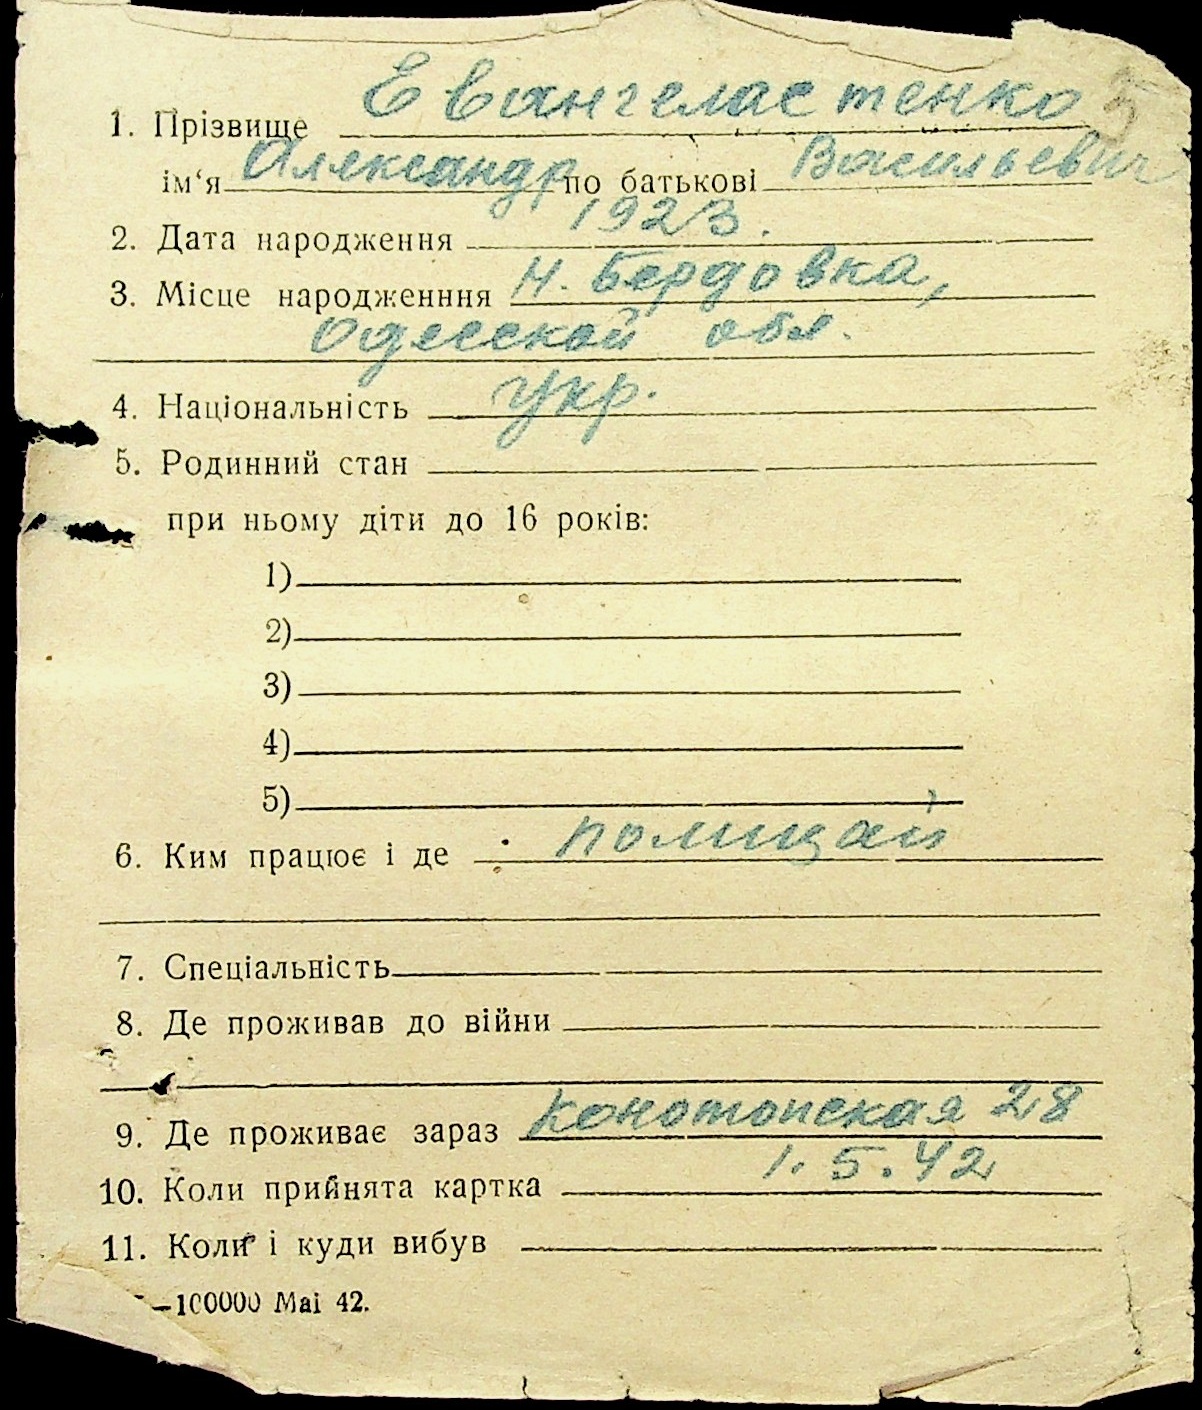 1. Прізвище Евангеластенко 5
ім‘я Александр по батькові Васильевич
2. Дата народження 1923.
3. Місце народженння Н. Бердовка,
Одесской обл.
4. Національність укр.
5. Родинний стан
при ньому діти до 16 років:
1)
2)
3)
4)
5)
6. Ким працює і де полицай
7. Спеціальність
8. Де проживав до війни
9. Де проживає зараз Конотопская 28
10. Коли прийнята картка 1.5.42
11. Коли і куди вибув
—100000 Mai 42.